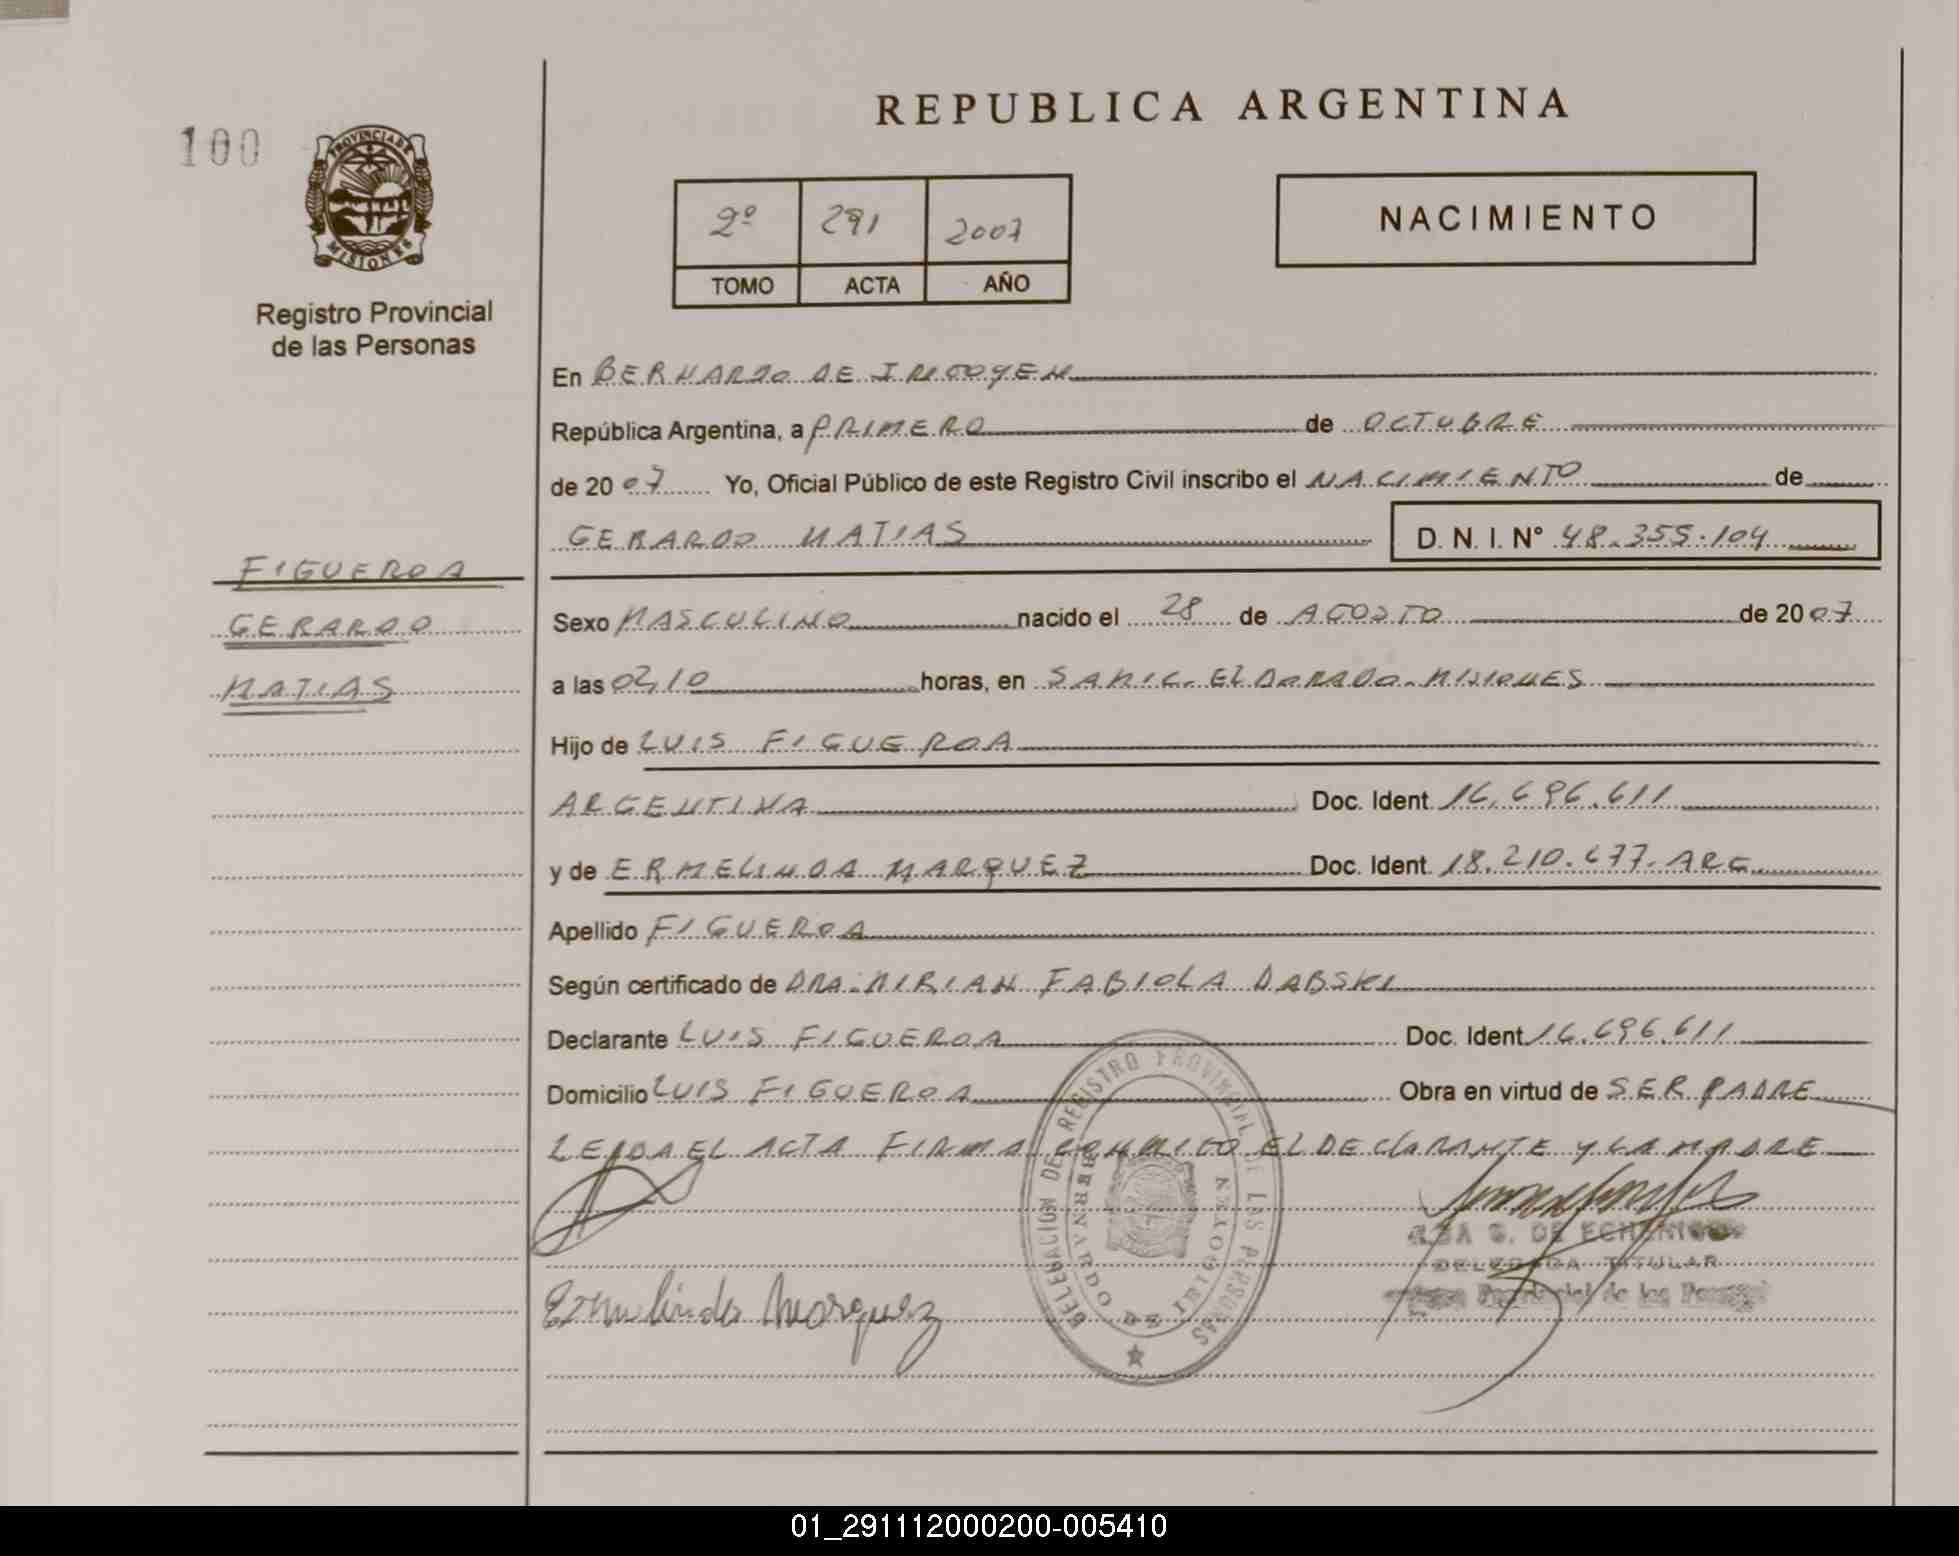 REPUBLICA ARGENTINA
100
PROVINCIA DE
MISIONES
Registro Provincial
de las Personas
2º 291 2007
TOMO ACTA AÑO
NACIMIENTO
En BERNARDO DE IRIGOYEN
República Argentina, a PRIMERO de OCTUBRE
de 2007 Yo, Oficial Público de este Registro Civil inscribo el NACIMIENTO de
GERARDO MATIAS D. N. I. N° 48.355.104
FIGUEROA
GERARDO
MATIAS
Sexo MASCULINO nacido el 28 de AGOSTO de 2007
a las 02,10 horas, en SAMIC. ELDORADO. MISIONES
Hijo de LUIS FIGUEROA
ARGENTINA Doc. Ident 16.696.611
y de ERMELINDA MARQUEZ Doc. Ident. 18.210.677. ARG.
Apellido FIGUEROA
Según certificado de DRA. MIRIAN FABIOLA DABSKI
Declarante LUIS FIGUEROA Doc. Ident 16.696.611
Domicilio LUIS FIGUEROA Obra en virtud de SER PADRE
LEIDA EL ACTA FIRMA CONMIGO EL DECLARANTE Y LA MADRE
DELEGACION DEL REGISTRO PROVINCIAL DE LAS PERSONAS
BERNARDO DE IRIGOYEN
S. DE
DELEGADA TITULAR
Provincial de las
Ermelinda Marquez
01_291112000200-005410